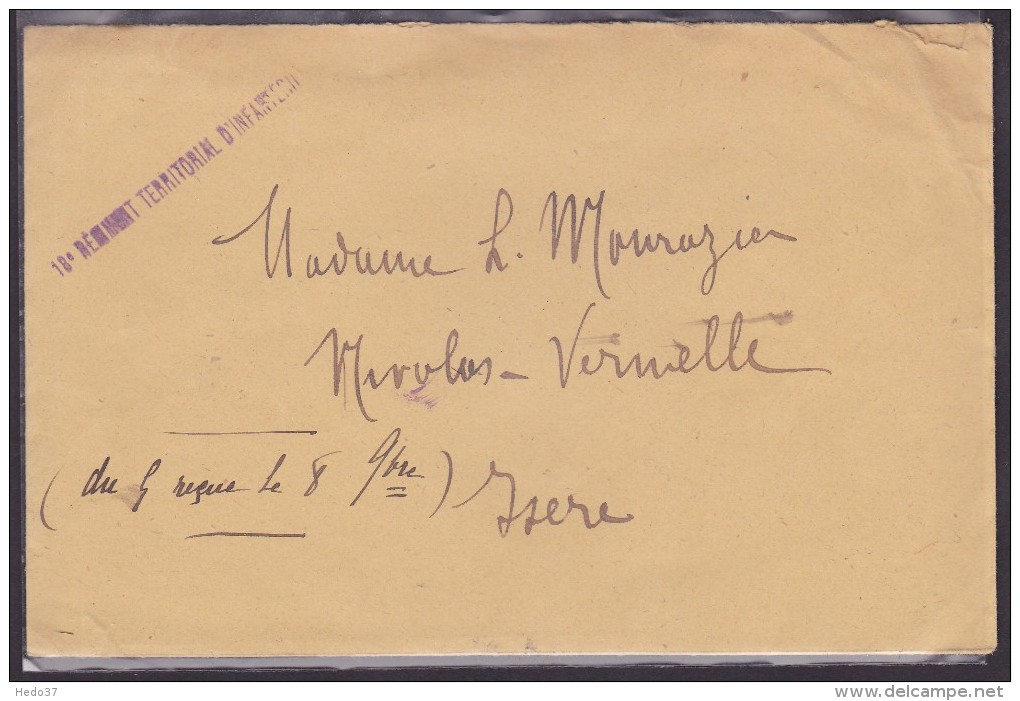 18e RÉGIMENT TERRITORIAL D'INFANTERIE
Madame L. Mourazier
Nivolas-Vermelle
(du 5 reçue le 8 9bre)
Isère
Hedo37
www.delcampe.net